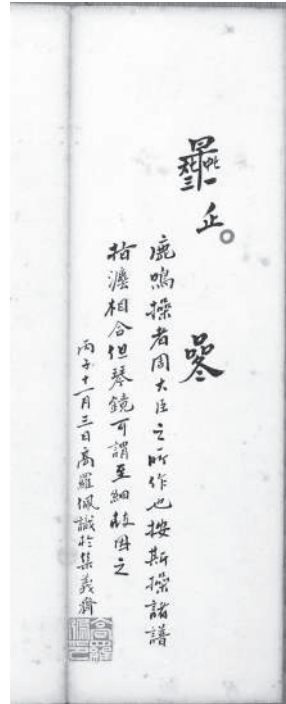 鹿鳴操者周大臣之所作也按斯操諸譜
指灋相合但琴鏡可謂至細故因之
丙子十一月三日高羅佩識於集義齋